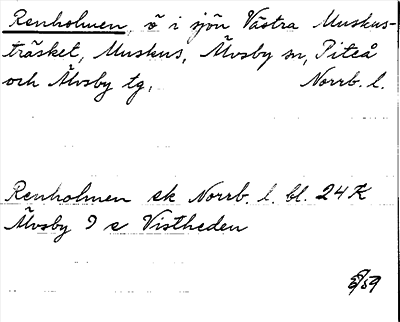 Renholmen, ö i sjön Västra Muskus-
träsket, Muskus, Älvsby sn, Piteå
och Älvsby tg, Norrb. l.
Renholmen ek Norrb. l. bl. 24 K
Älvsby 9 c Vistheden